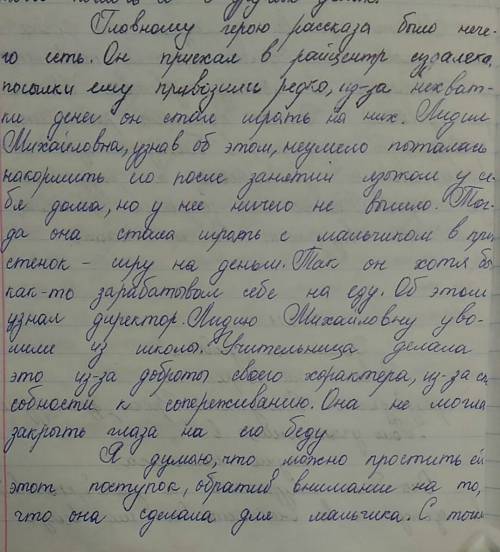 Главному герою рассказа было нече-
го есть. Он приехал в райцентр издалека,
посылки ему привозились редко, из-за нехват-
ки денег он стал играть на них. Лидия
Михайловна, узнав об этом, неумело пыталась
накормить его после занятий языком у се-
бя дома, но у неё ничего не вышло. Тог-
да она стала играть с мальчиком в при
стенок - игру на деньги. Так он хотя бы
как-то зарабатывал себе на еду. Об этом
узнал директор. Лидию Михайловну уво-
лили из школы. Учительница делала
это из-за доброты своего характера, из-за сп
собности к сопереживанию. Она не могла
закрыть глаза на его беду
Я думаю, что можно простить ей
этот поступок, обратив внимание на то,
что она сделала для мальчика. С точ